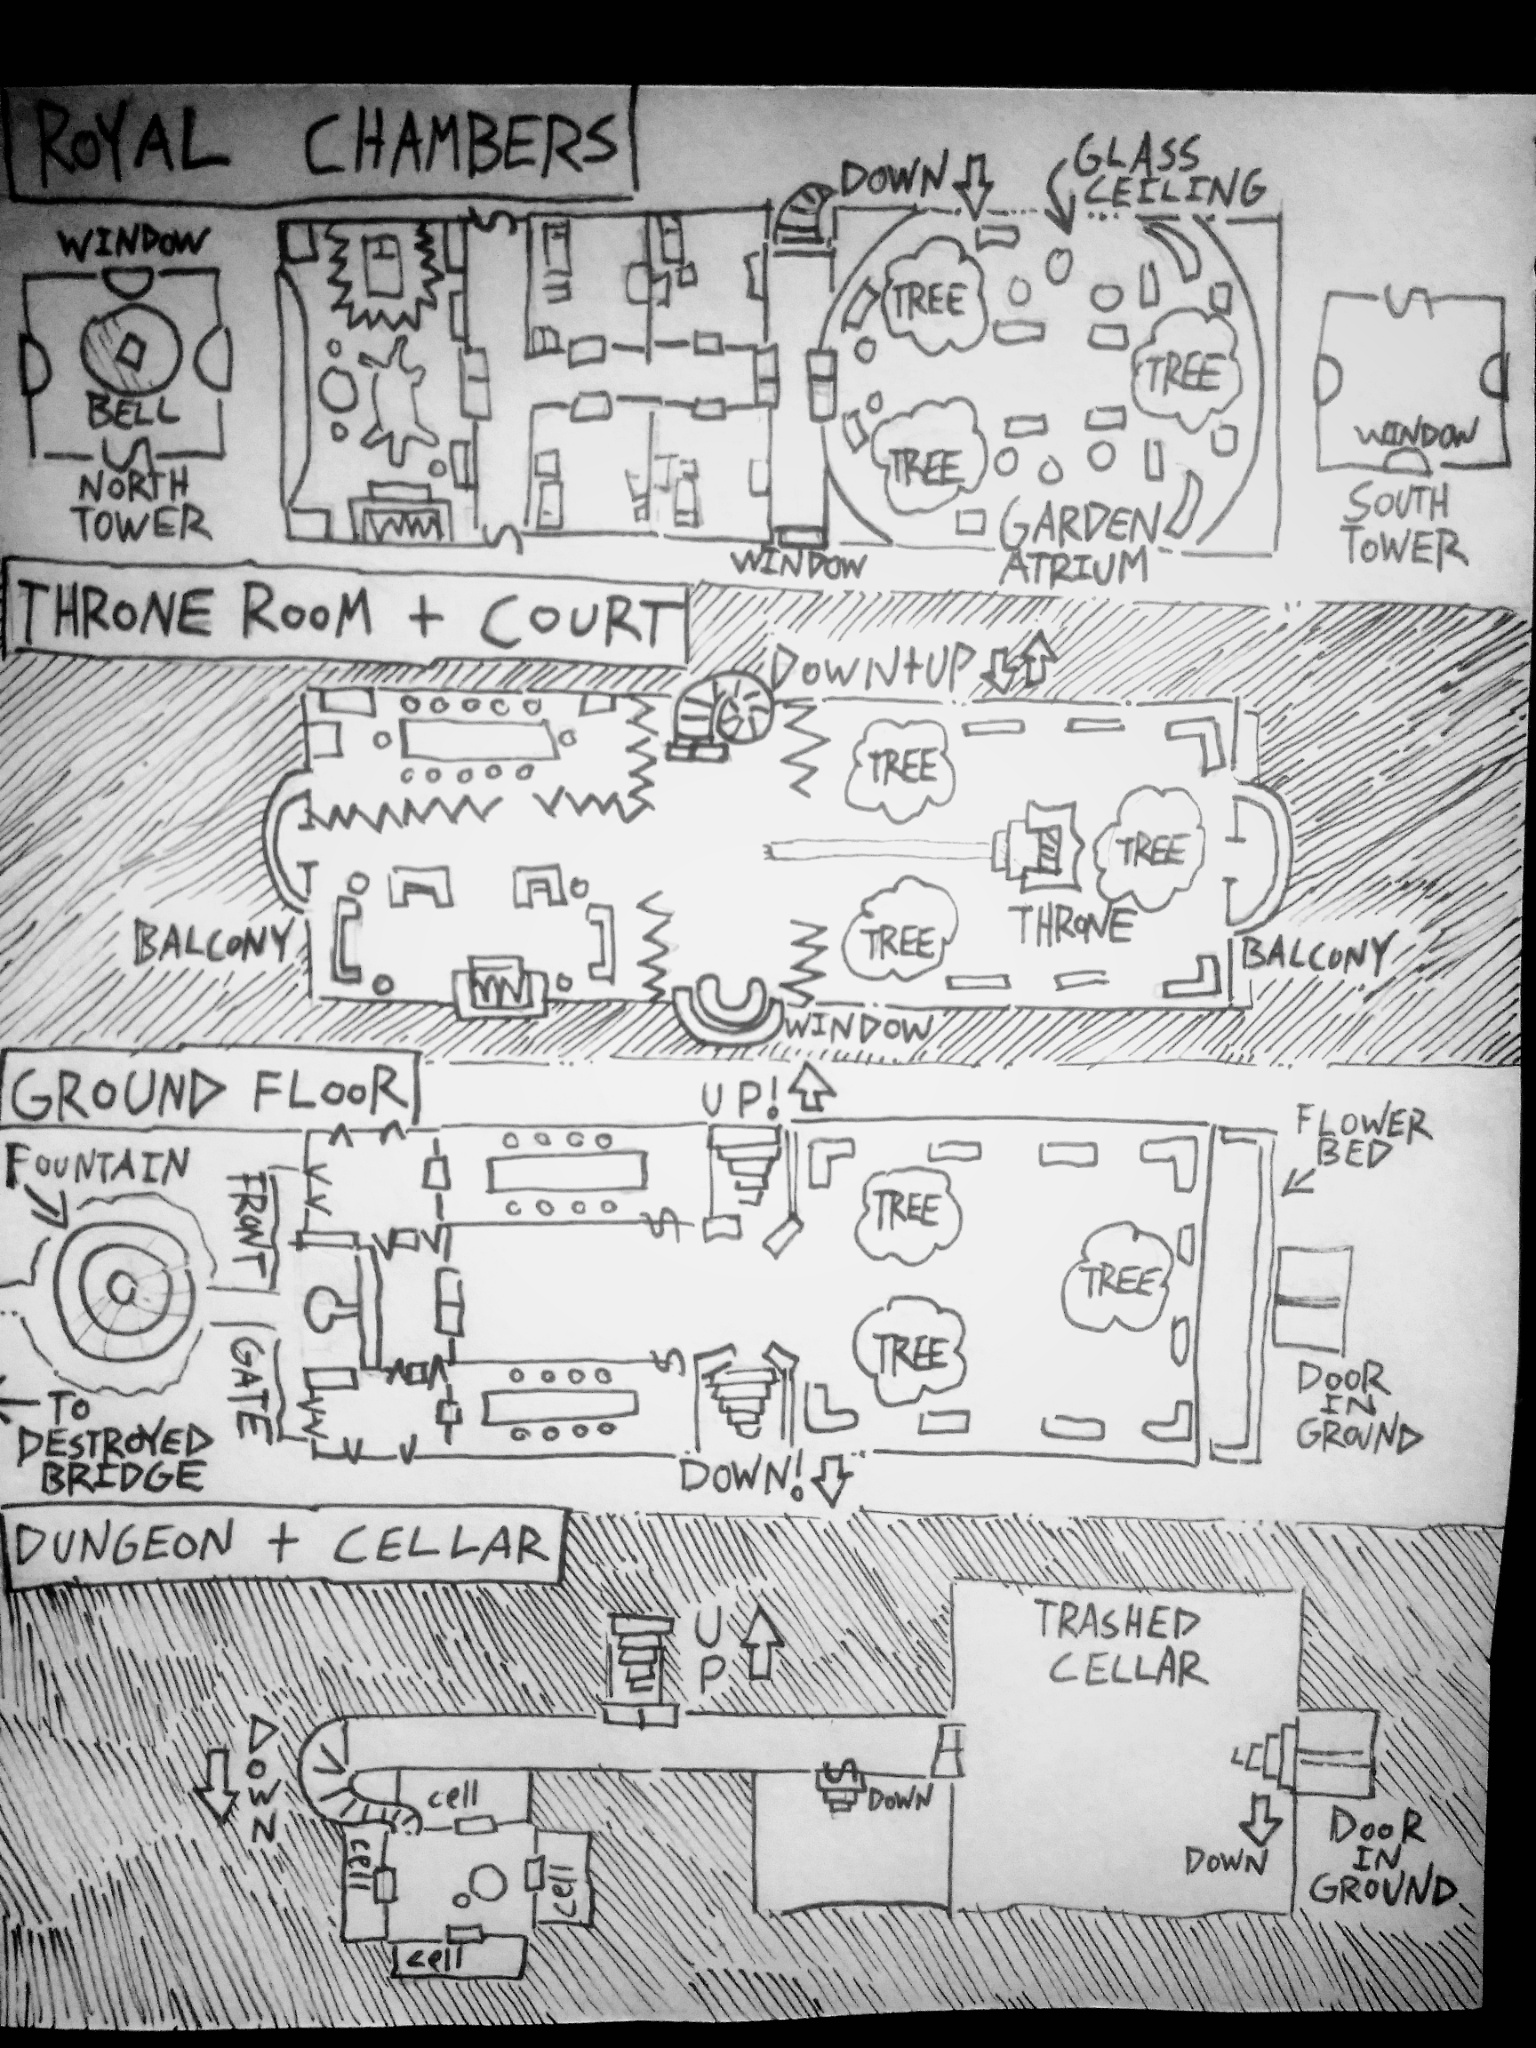 ROYAL CHAMBERS
DOWN
GLASS
CEILING
WINDOW
BELL
NORTH
TOWER
TREE
TREE
TREE
GARDEN
ATRIUM
WINDOW
WINDOW
SOUTH
TOWER
THRONE ROOM + COURT
DOWN+UP
TREE
TREE
TREE
THRONE
BALCONY
BALCONY
WINDOW
GROUND FLOOR
UP!
FLOWER
BED
FOUNTAIN
FRONT
GATE
TREE
TREE
TREE
TO
DESTROYED
BRIDGE
DOWN!
DOOR
IN
GROUND
DUNGEON + CELLAR
UP
TRASHED
CELLAR
DOWN
cell
cell
cell
cell
DOWN
DOWN
DOOR
IN
GROUND